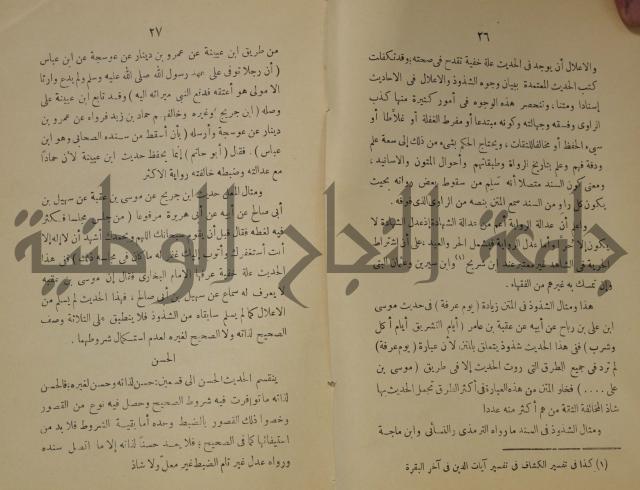 ٢٦
والاعلال أن يوجد فى الحديث علة خفية تقدح فى صحته وقد تكفلت
كتب الحديث المعتمدة ببيان وجوه الشذوذ والاعلال فى الاحاديث
إسنادا ومتنا، وتنحصر هذه الوجوه فى أمور كثيرة منها كذب
الراوى وفسقه وجهالته وكونه مبتدعا أو مفرط الغفلة أو غلاّطا أو
سىء الحفظ أو مخالفا للثقات، ويحتاج الحكم بشىء من ذلك إلى سعة علم
ودقة فهم وعلم بتاريخ الرواة وطبقاتهم وأحوال المتون والاسانيد،
ومعنى كون السند متصلا أنه سلم من سقوط بعض رواته بحيث
يكون كل راو من السند سمع المتن بنصه من الراوى الذى فوقه.
أن عدالة الرواية أعم من عدالة الشهادة إذ عدل الشهادة لا
يكون إلا وأما عدل الرواية فيشمل الحر والعبد على أن اشتراط
الحرية فى الشاهد غير معتبر عند ابن شريح (١) وابن سيرين وعثمان البتى
تمسك به غيرهم من الفقهاء.
هذا ومثال الشذوذ فى المتن زيادة (يوم عرفة) فى حديث موسى
ابن على بن رباح عن أبيه عن عقبة بن عامر (أيام التشريق أيام أكل
وشرب) ففى هذا الحديث شذوذ يتعلق بالمتن لأن عبارة (يوم عرفة)
لم ترد فى جميع الطرق التى روت الحديث إلا فى طريق (موسى بن
على ....) فخلو المتن من هذه العبارة فى أكثر الطرق تجعل الحديث بها
شاذ المخالفة الثقة من هم أكثر منه عددا
ومثال الشذوذ فى السند ما رواه الترمذى والنسائى وابن ماجة
(١) كذا فى تفسير الكشاف فى تفسير آيات الدين فى آخر البقرة
٢٧
من طريق ابن عيينة عن عمرو بن دينار عن عوسجة عن ابن عباس
(أن رجلا توفى على عهد رسول الله صلى الله عليه وسلم ولم يدع وارثا
الا مولى هو أعتقه فدفع النبى ميراثه اليه) وقد تابع ابن عيينة على
وصله (ابن جريج) وغيره وخالفهم حماد بن زيد فرواه عن عمرو بن
دينار عن عوسجة وأرسله (بأن أسقط من سنده الصحابى وهو ابن
عباس). فقال (أبو حاتم) إنما يحفظ حديث ابن عيينة لأن حمادا
مع عدالته وضبطه خالفته رواية الاكثر
ومثال المعل حديث ابن جريج عن موسى بن عقبة عن سهيل بن
أبى صالح عن أبيه عن أبى هريرة مرفوعا (من جلس مجلسا فكثر
فيه لغطه فقال قبل أن يقوم سبحانك اللهم وبحمدك أشهد أن لا إله إلا
أنت أستغفرك وأتوب إليك غفر له ما كان فى مجلسه ذلك) ففى هذا
الحديث علة خفية عرفها الامام البخارى فقال إن موسى بن عقبة
لا يعرف له سماع عن سهيل بن أبى صالح، فهذا الحديث لم يسلم من
الاعلال كما لم يسلم سابقاه من الشذوذ فلا ينطبق على الثلاثة وصف
الصحيح لذاته ولا الصحيح لغيره لعدم استكمال شروطهما.
الحسن
ينقسم الحديث الحسن الى قسمين: حسن لذاته وحسن لغيره: فالحسن
لذاته ما توفرت فيه شروط الصحيح وحصل فيه نوع من القصور
وخصوا ذلك القصور بالضبط وحده أما بقية الشروط فلا بد من
استيفائها كما فى الصحيح؛ فلا يعد حسنا لذاته إلا ما اتصل سنده
ورواه عدل غير تام الضبط غير معل ولا شاذ
جامعة النجاح الوطنية